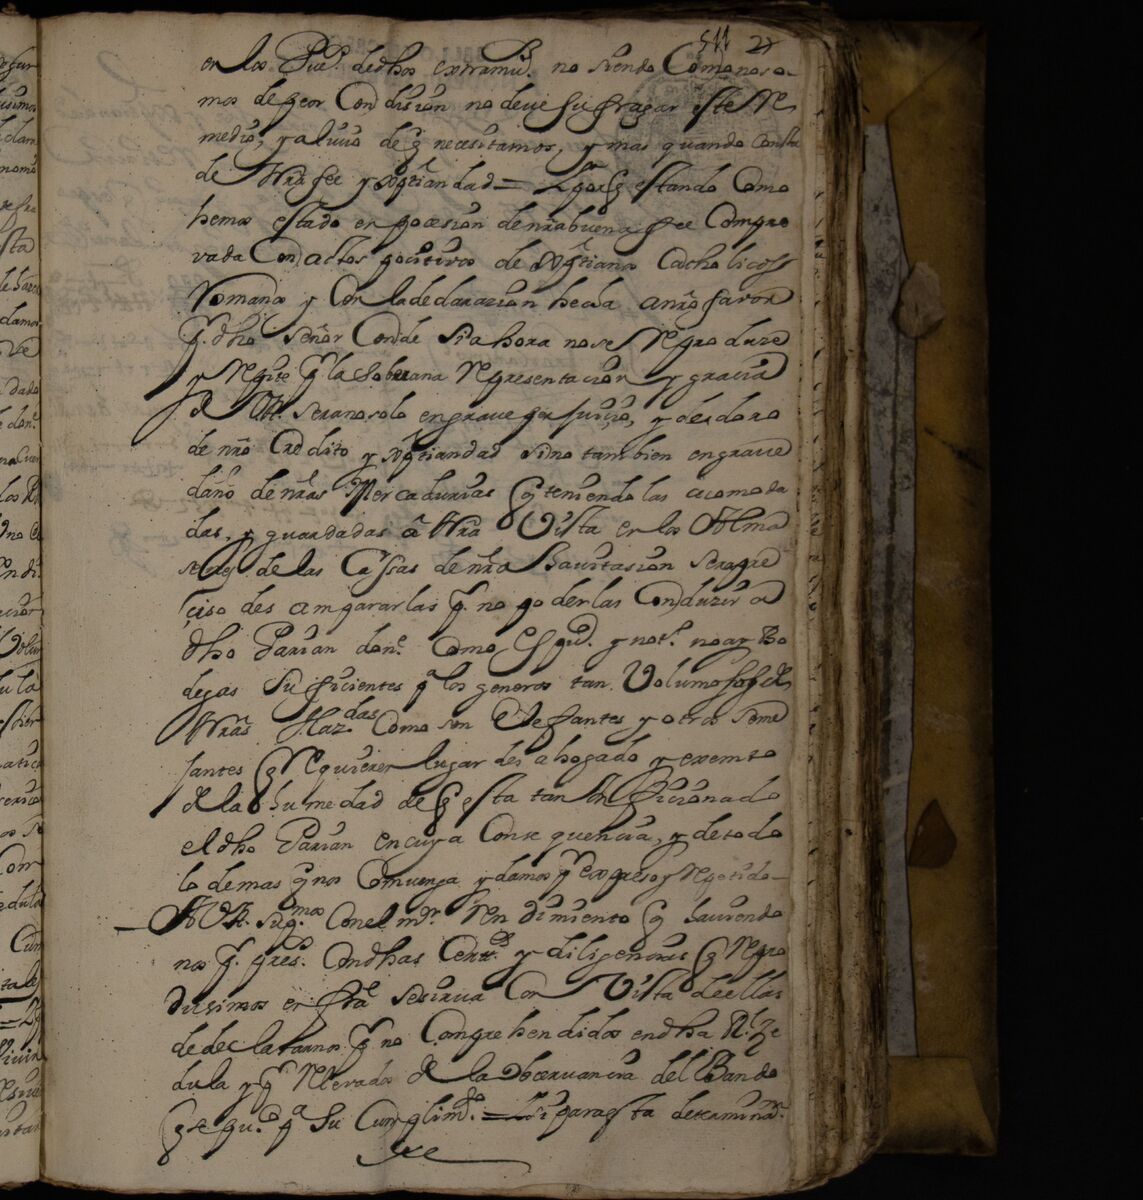 511 2
en los Pue.s de dhos extramu.s no siendo Como no so-
mos de peor Condision no deve sufragar este Re
medio, y alivio de q necesitamos, y mas quando consta
de Vrâ fee y xptiandad = Y porq estando Como
hemos estado en pocesion de nrâ buena fee Compro
vada Con actos pocitivos de xptianos Catholicos
Romanos y Con la declarazion hecha a nrõ favor
p.r dho Señor Conde si ahora no se Reproduze
y Repite p.r la Soberana Representacion y gracia
de VA. sera no solo en grave perjuicio, y desdoro
de nrõ Credito y xptiandad sino tambien en grave
daño de nrâs Mercadurias q teniendo las acomoda
das, y guardadas â Vrâ Vista en los Alma
senes de las Cassas de nrâ havitasion sera pre
ciso des ampararlas p.r no poderlas Conduzir a
dho Parian don.e Como es pu.co y not.o no ay Bo
degas suficientes p.a los generos tan Volumosos de
Nrâs Haz.das Como son Elefantes y otros seme
jantes q Requieren lugar des ahogado y exempto
de la humedad de q esta tan Inficionado
el dho Parian en cuya Consequencia, y de todo
lo demas q nos Convenga y damos p.r expreso y Repetido-
A VA. Sup.mos Con el m.r Rendimiento q haviendo
nos p.r pres.dos Con dhas Certt.s y diligencias q Repro
dusimos en forâ se sirva Con Vista de ellas
de declararnos p.r no Comprehendidos en dha R.l Ze
dula y p.r Relevados de la Obcervancia del Bando
q se pu.co p.a Su Cumplim.to = Y si para esta determinaz.n